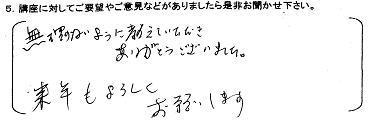 5. 講座に対してご要望やご意見などがありましたら是非お聞かせ下さい。
無理ないように教えていただき
ありがとうございました。
来年もよろしく
お願いします